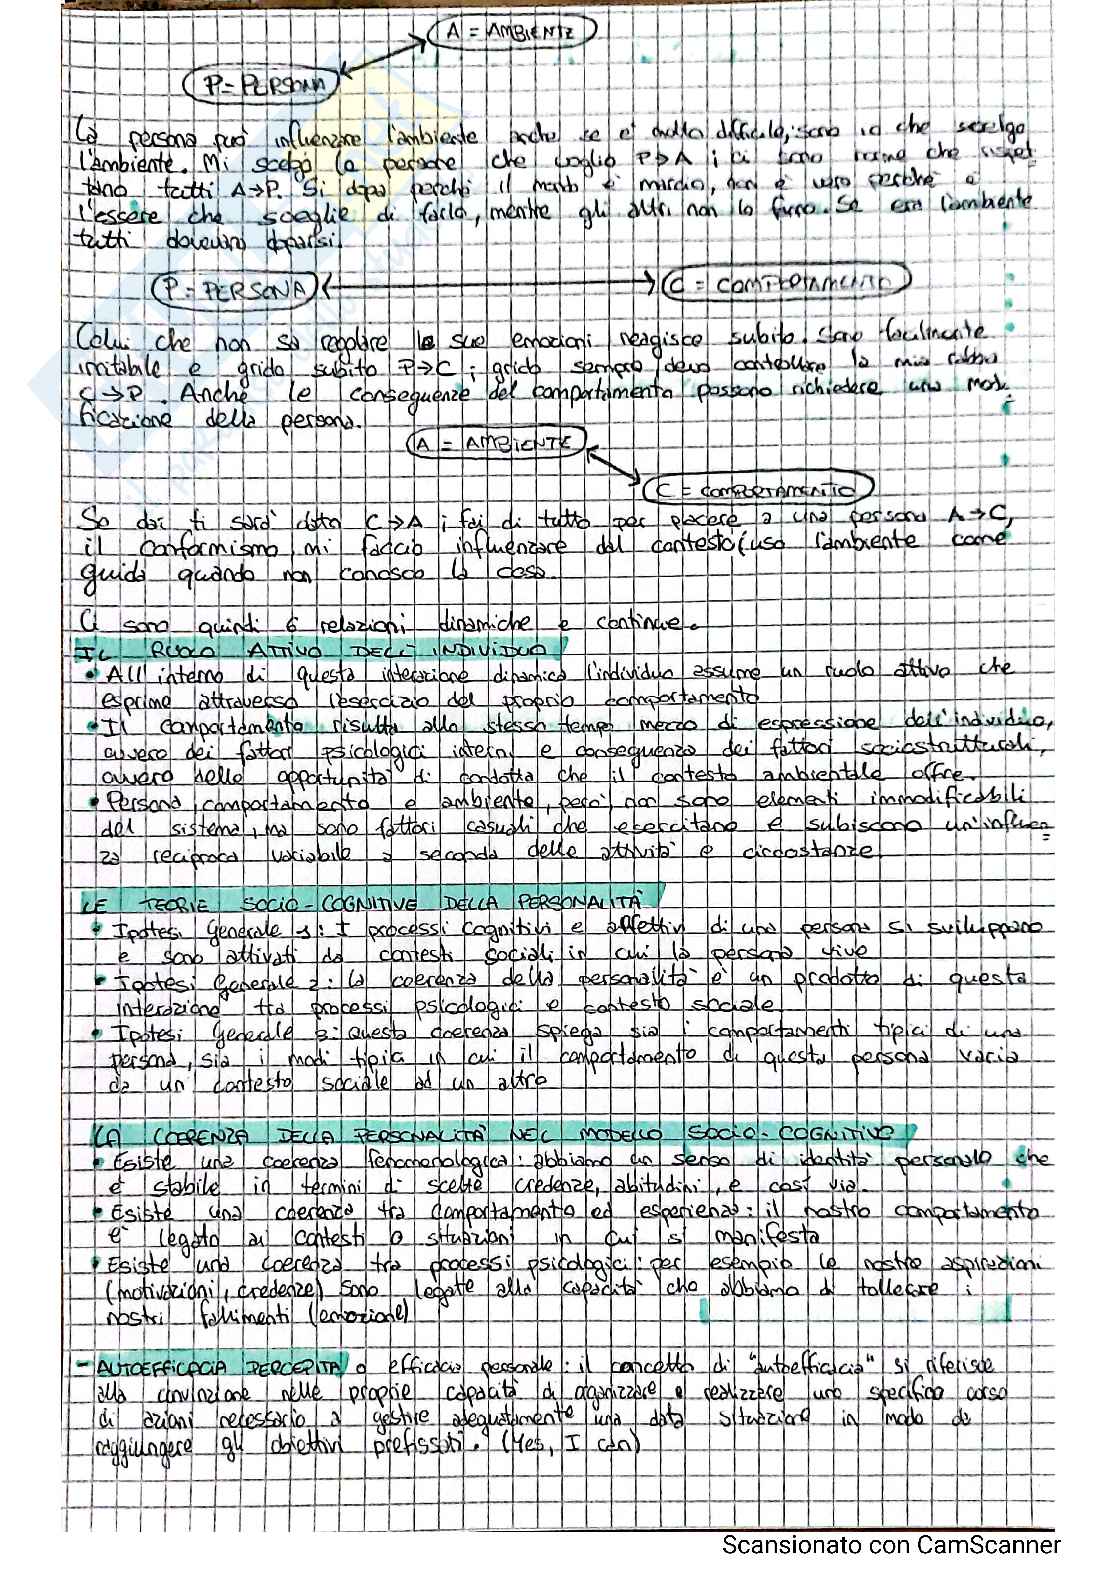 A = AMBIENTE
P = PERSONA
La persona può influenzare l'ambiente anche se è molto difficile, sono io che scelgo
l'ambiente. Mi scelgo le persone che voglio P→A ; ci sono norme che rispet
tano tutti A→P. Si dopa perché il mondo è marcio, non è vero perché è
l'essere che sceglie di farlo, mentre gli altri non lo fanno. Se era l'ambiente
tutti dovevano doparsi.
P = PERSONA
C = COMPORTAMENTO
Colui che non sa regolare le sue emozioni reagisce subito. Sono facilmente
irritabile e grido subito P→C ; grido sempre devo controllare la mia rabbia
C→P. Anche le conseguenze del comportamento possono richiedere una modi
ficazione della persona.
A = AMBIENTE
C = COMPORTAMENTO
Se dai ti sarà dato C→A ; fai di tutto per piacere a una persona A→C,
il conformismo, mi faccio influenzare dal contesto (uso l'ambiente come
guida quando non conosco la cosa.
Ci sono quindi 6 relazioni dinamiche e continue.
IL RUOLO ATTIVO DELL'INDIVIDUO
• All'interno di questa interazione dinamica l'individuo assume un ruolo attivo che
esprime attraverso l'esercizio del proprio comportamento
• Il comportamento risulta allo stesso tempo mezzo di espressione dell'individuo,
ovvero dei fattori psicologici interni e conseguenza dei fattori sociostrutturali,
ovvero nelle opportunità di condotta che il contesto ambientale offre.
• Persona, comportamento e ambiente, però, non sono elementi immodificabili
del sistema, ma sono fattori casuali che esercitano e subiscono un'influen
za reciproca variabile a seconda delle attività e circostanze
LE TEORIE SOCIO-COGNITIVE DELLA PERSONALITÀ
• Ipotesi Generale 1: I processi cognitivi e affettivi di una persona si sviluppano
e sono attivati da contesti sociali in cui la persona vive
• Ipotesi Generale 2: la coerenza della personalità è un prodotto di questa
interazione tra processi psicologici e contesto sociale
• Ipotesi Generale 3: Questa coerenza spiega sia i comportamenti tipici di una
persona, sia i modi tipici in cui il comportamento di questa persona varia
da un contesto sociale ad un altro
LA COERENZA DELLA PERSONALITÀ NEL MODELLO SOCIO-COGNITIVO
• Esiste una coerenza fenomenologica: abbiamo un senso di identità personale che
è stabile in termini di scelte credenze, abitudini, e così via.
• Esiste una coerenza tra comportamento ed esperienza: il nostro comportamento
è legato ai contesti o situazioni in cui si manifesta
• Esiste una coerenza tra processi psicologici: per esempio le nostre aspirazioni
(motivazioni, credenze) sono legate alla capacità che abbiamo di tollerare i
nostri fallimenti (emozione)
- AUTOEFFICACIA PERCEPITA o efficacia personale: il concetto di "autoefficacia" si riferisce
alla convinzione nelle proprie capacità di organizzare e realizzare uno specifico corso
di azioni necessario a gestire adeguatamente una data situazione in modo da
raggiungere gli obiettivi prefissati. (Yes, I can)
Scansionato con CamScanner